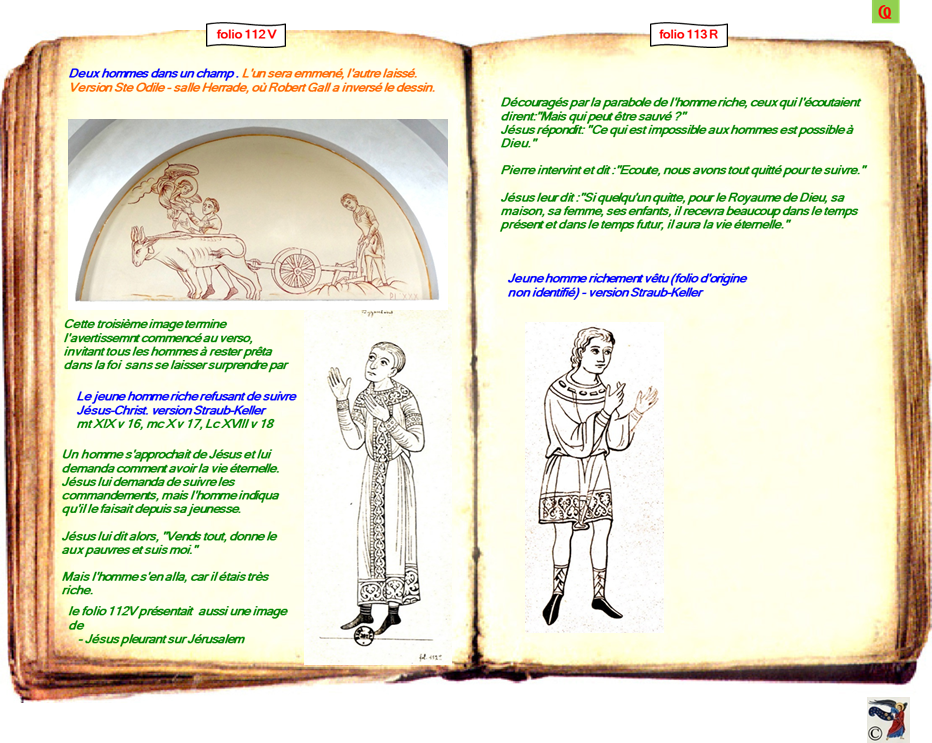 folio 112 V
Deux hommes dans un champ . L'un sera emmené, l'autre laissé.
Version Ste Odile - salle Herrade, où Robert Gall a inversé le dessin.
Cette troisième image termine
l'avertissemnt commencé au verso,
invitant tous les hommes à rester prêta
dans la foi sans se laisser surprendre par
Le jeune homme riche refusant de suivre
Jésus-Christ. version Straub-Keller
mt XIX v 16, mc X v 17, Lc XVIII v 18
Un homme s'approchait de Jésus et lui
demanda comment avoir la vie éternelle.
Jésus lui demanda de suivre les
commandements, mais l'homme indiqua
qu'il le faisait depuis sa jeunesse.
Jésus lui dit alors, "Vends tout, donne le
aux pauvres et suis moi."
Mais l'homme s'en alla, car il étais très
riche.
le folio 112V présentait aussi une image
de
- Jésus pleurant sur Jérusalem
fol. 112
folio 113 R
Découragés par la parabole de l'homme riche, ceux qui l'écoutaient
dirent:"Mais qui peut être sauvé ?"
Jésus répondit: "Ce qui est impossible aux hommes est possible à
Dieu."
Pierre intervint et dit :"Ecoute, nous avons tout quitté pour te suivre."
Jésus leur dit :"Si quelqu'un quitte, pour le Royaume de Dieu, sa
maison, sa femme, ses enfants, il recevra beaucoup dans le temps
présent et dans le temps futur, il aura la vie éternelle."
Jeune homme richement vêtu (folio d'origine
non identifié) - version Straub-Keller
©